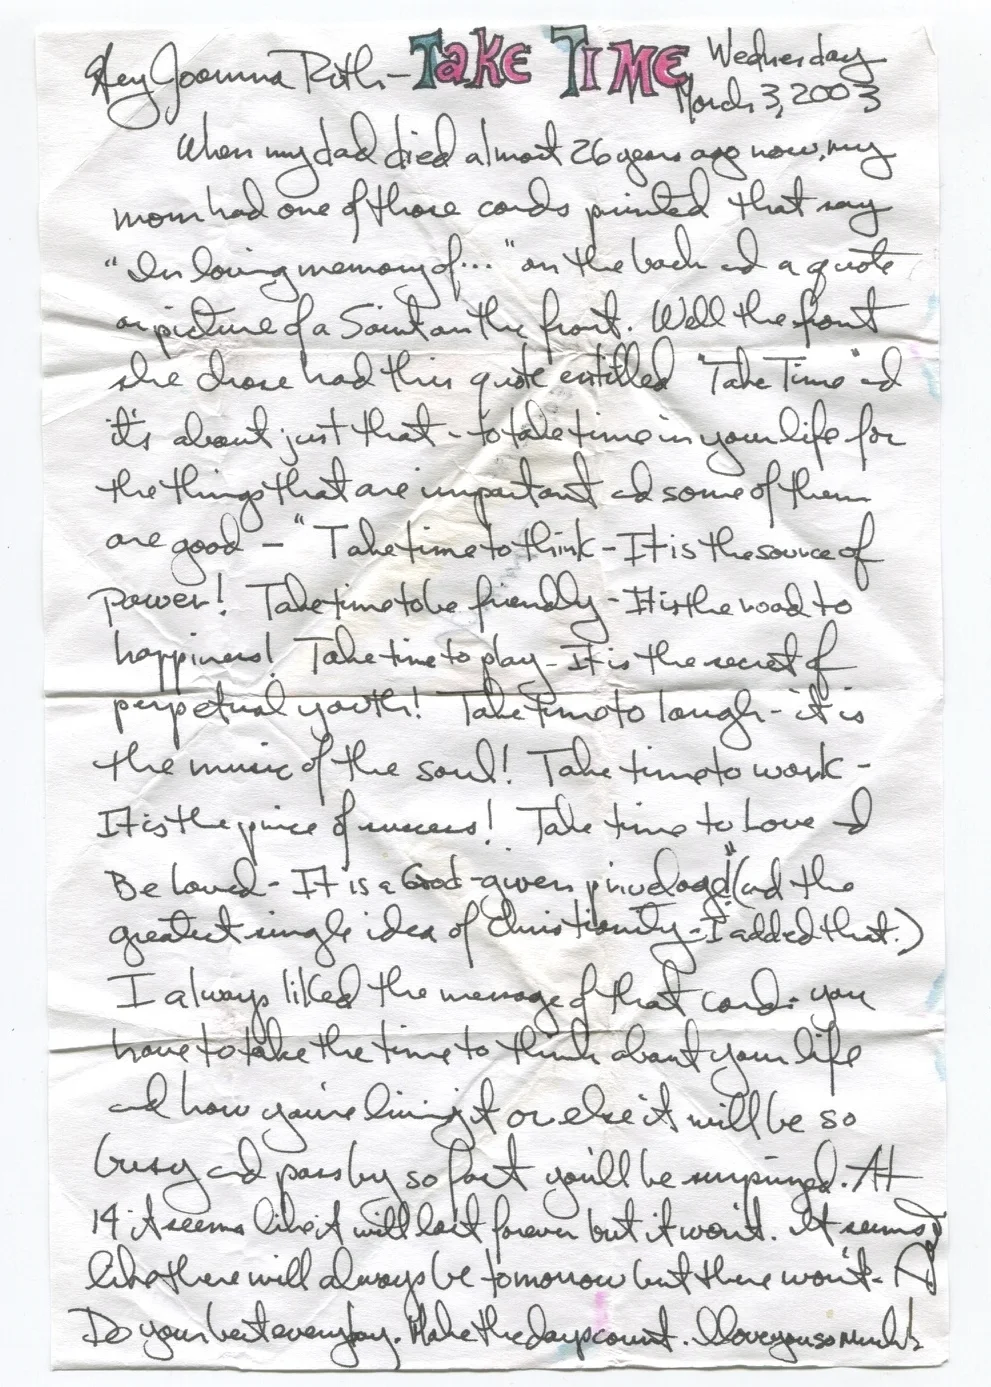 Hey Joanna Ruth - TAKE TIME Wednesday
March 3, 2003
When my dad died almost 26 years ago now, my
mom had one of those cards printed that say
"In loving memory of..." on the back and a quote
or picture of a Saint on the front. Well the front
she chose had this quote entitled "Take Time" and
it's about just that - to take time in your life for
the things that are important and some of them
are good - "Take time to think - It is the source of
power! Take time to be friendly - It is the road to
happiness! Take time to play - It is the secret of
perpetual youth! Take time to laugh - it is
the music of the soul! Take time to work -
It is the price of success! Take time to Love and
Be loved - It is a God-given privelage!" (and the
greatest single idea of Christianity - I added that.)
I always liked the message of that card: you
have to take the time to think about your life
and how you're living it or else it will be so
busy and pass by so fast you'll be surprised. At
14 it seems like it will last forever but it won't. It seems
like there will always be tomorrow but there won't. Dad
Do your best everyday. Make the days count. I love you so much!